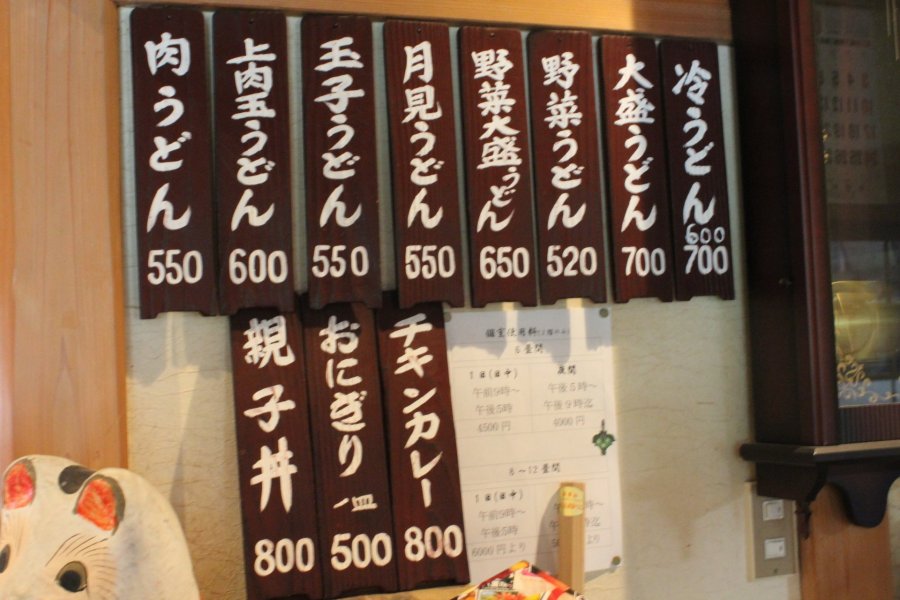 冷うどん
600
700
大盛うどん
700
野菜うどん
520
野菜大盛うどん
650
月見うどん
550
玉子うどん
550
上肉玉うどん
600
肉うどん
550
チキンカレー
800
おにぎり 一皿
500
親子丼
800
個室使用料
6畳間
1日(日中)
午前9時～
午後5時
4500円
夜間
午後5時～
午後9時迄
4000円
8～12畳間
1日(日中)
午前9時～
午後5時
6000円より